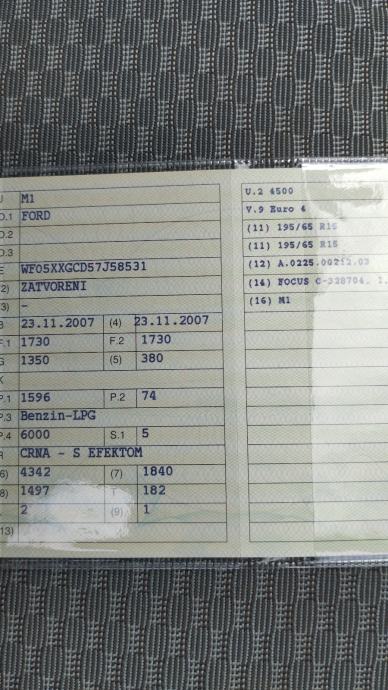 J M1
D.1 FORD
D.2
D.3
E WF05XXGCD57J58531
2) ZATVORENI
3) -
B 23.11.2007 (4) 23.11.2007
F.1 1730 F.2 1730
G 1350 (5) 380
K
P.1 1596 P.2 74
P.3 Benzin-LPG
P.4 6000 S.1 5
R CRNA - S EFEKTOM
6) 4342 (7) 1840
8) 1497 T 182
2 (9) 1
13)
U.2 4500
V.9 Euro 4
(11) 195/65 R15
(11) 195/65 R15
(12) A.0225.00212.03
(14) FOCUS C-328704, 1.
(16) M1